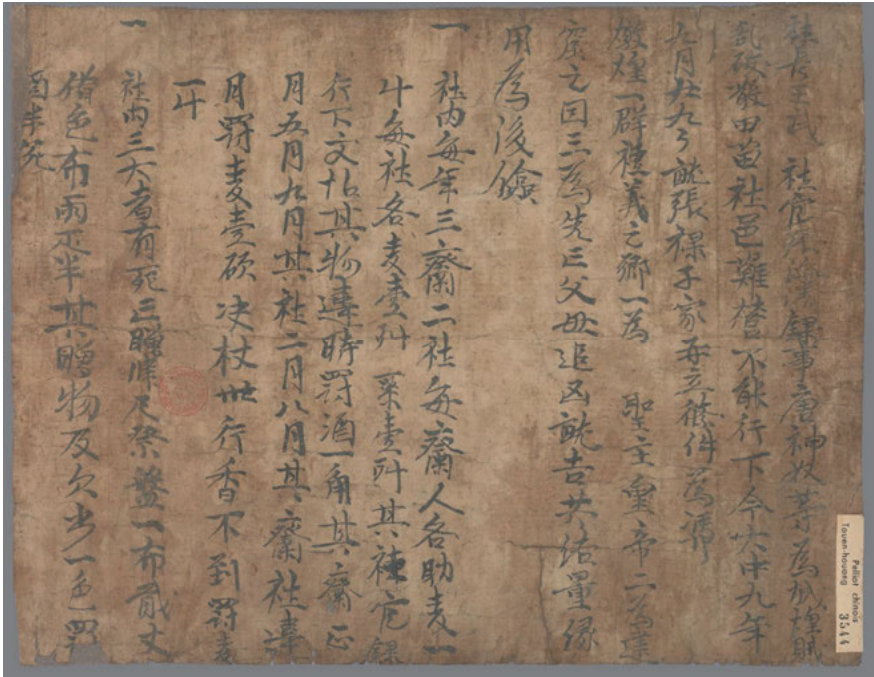 社長王武 社官張海清 錄事唐神奴等為城煌賊
亂破散田苗社邑難營不能行下今大中九年
九月廿九日就張祿子家再立條件為憑
燉煌一群禮義之鄉一為 聖主皇帝二為建
窟之因三為先亡父母追凶就吉共結量緣
用為後驗
一 社內每年三齋二社每齋人各助麥一
斗每社各麥壹㪷 粟壹㪷其社官錄
行下文帖其物違時罰酒一角其齋正
月五月九月其社二月八月其齋社違
月罰麥壹碩決杖卅行香不到罰麥
一斗
一 社內三大者有死亡贈尺祭盤一布貳丈
借色布兩疋半其贈物及欠少一色罰
酒半瓮
Pelliot chinois
Touen-houang
3544